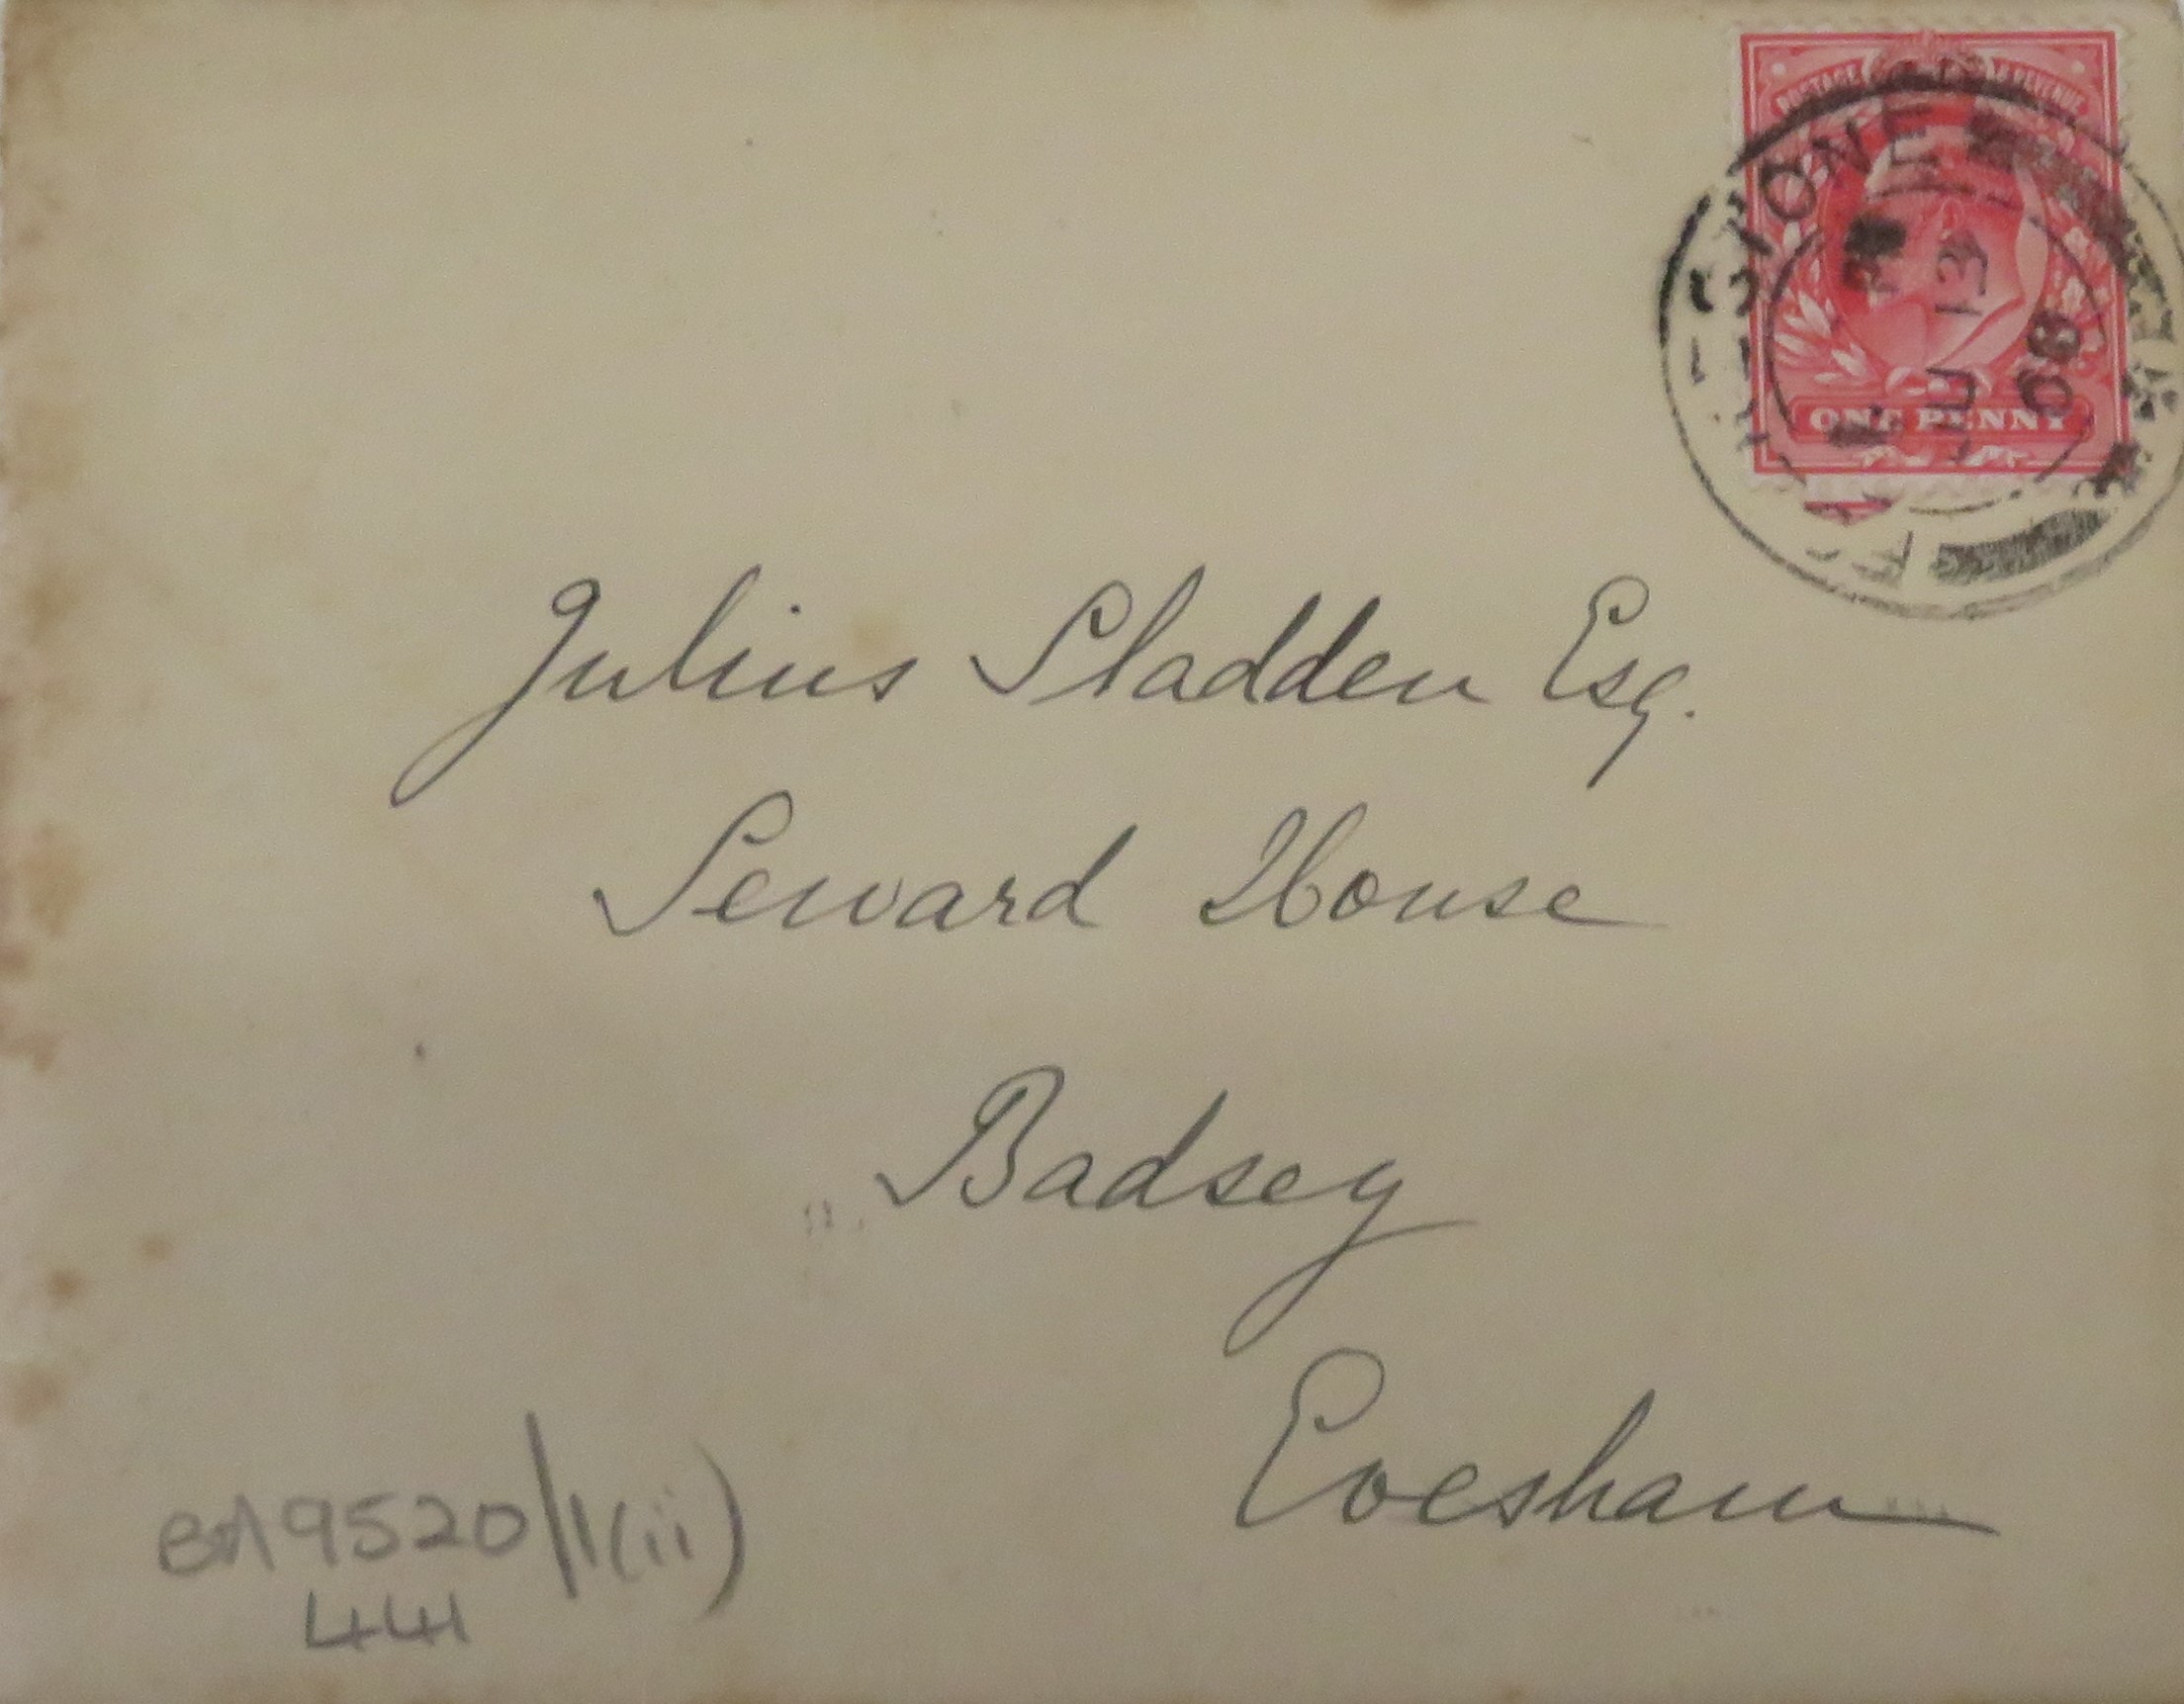 POSTAGE & REVENUE
ONE PENNY
JU 13
08
Julius Sladden Esq.
Seward House
Badsey
Evesham
BA9520/1(ii)
441